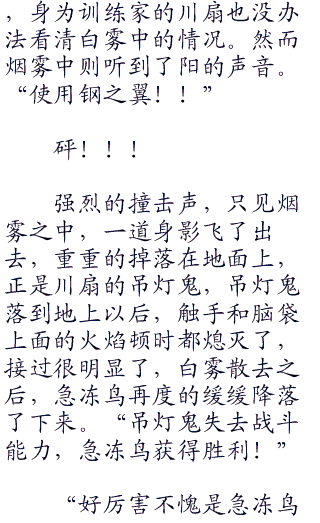 ，身为训练家的川扇也没办
法看清白雾中的情况。然而
烟雾中则听到了阳的声音。
“使用钢之翼！！”
砰！！！
强烈的撞击声，只见烟
雾之中，一道身影飞了出
去，重重的掉落在地面上，
正是川扇的吊灯鬼，吊灯鬼
落到地上以后，触手和脑袋
上面的火焰顿时都熄灭了，
接过很明显了，白雾散去之
后，急冻鸟再度的缓缓降落
了下来。“吊灯鬼失去战斗
能力，急冻鸟获得胜利！”
“好厉害不愧是急冻鸟